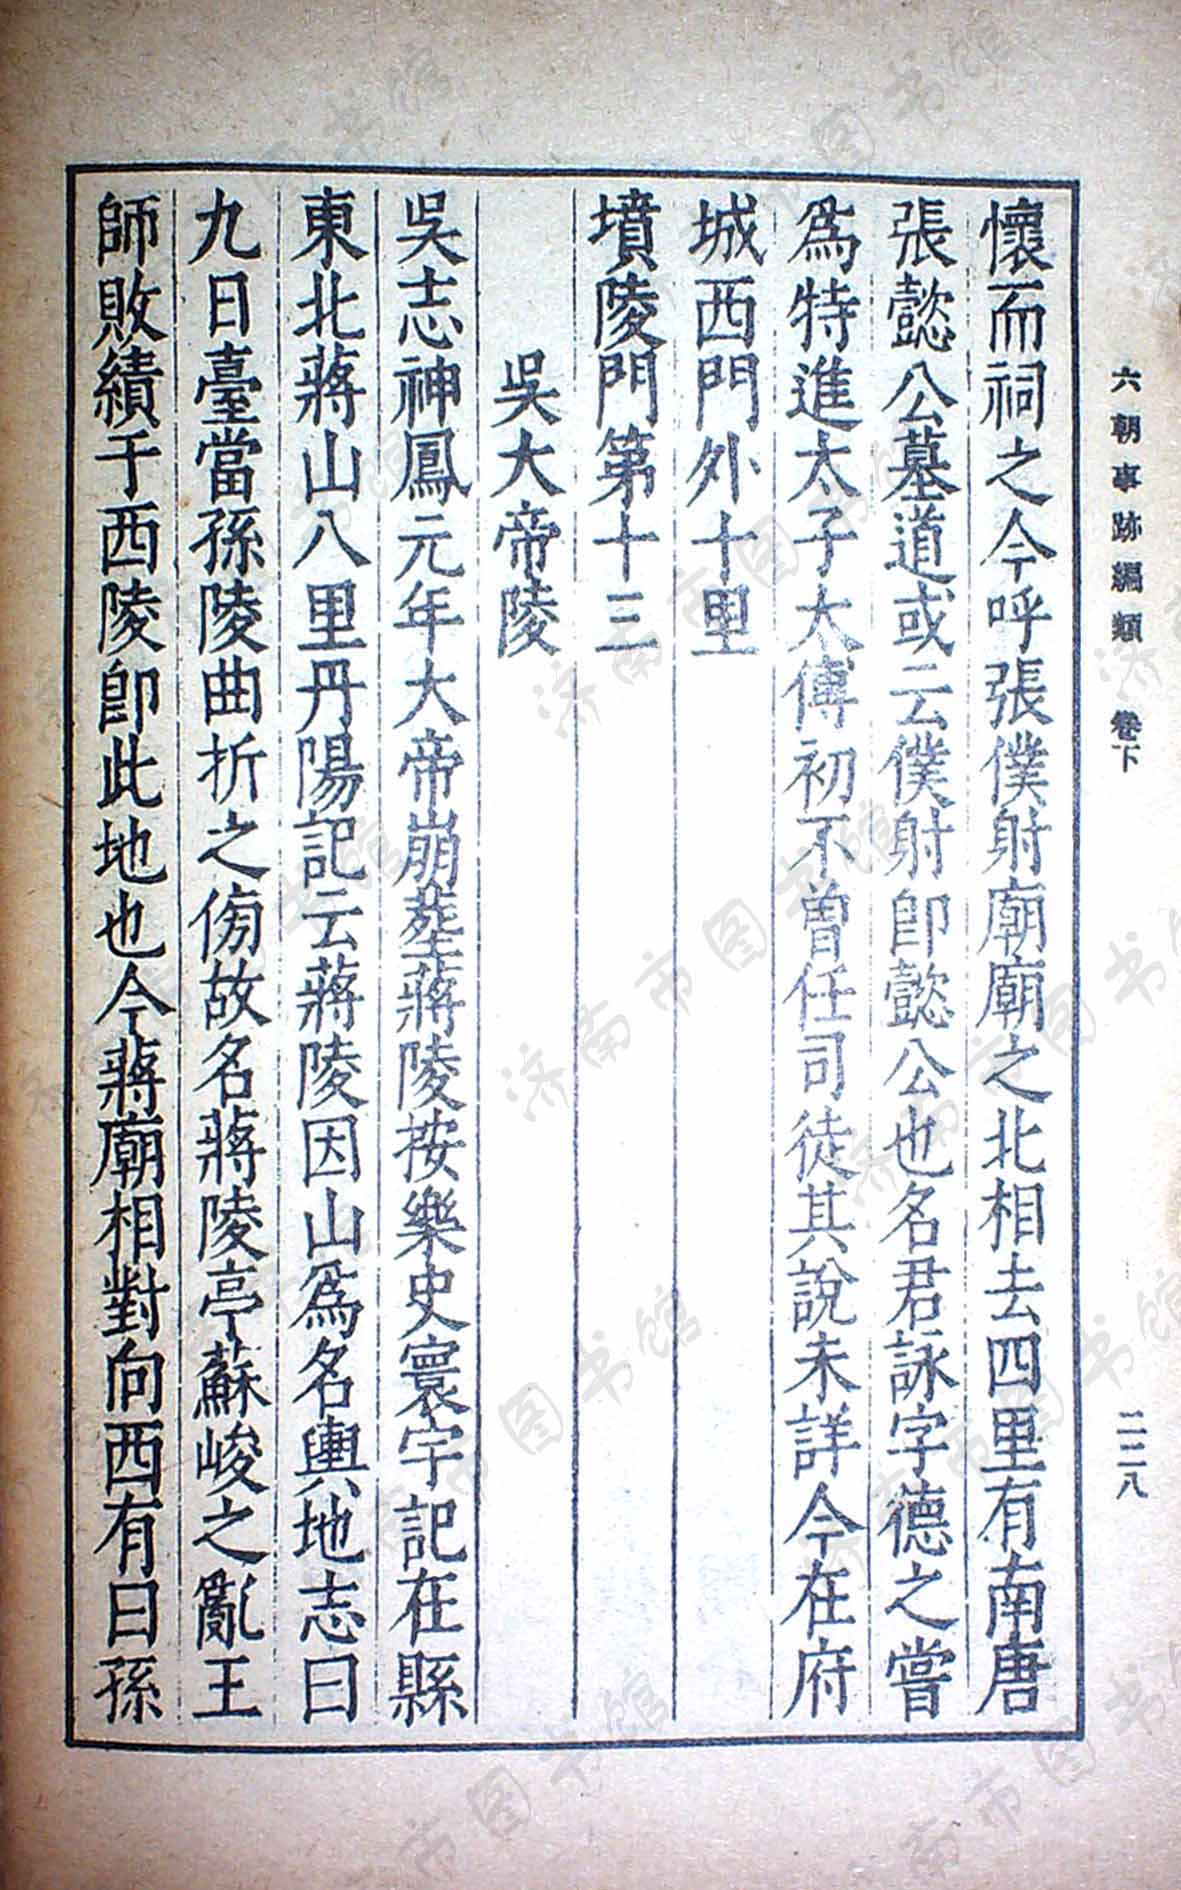 六朝事跡編類 卷下
二二八
懷而祠之今呼張僕射廟廟之北相去四里有南唐
張懿公墓道或云僕射卽懿公也名君詠字德之嘗
爲特進太子太傅初不曾任司徒其說未詳今在府
城西門外十里
墳陵門第十三
吳大帝陵
吳志神鳳元年大帝崩葬蔣陵按樂史寰宇記在縣
東北蔣山八里丹陽記云蔣陵因山爲名輿地志曰
九日臺當孫陵曲折之傍故名蔣陵亭蘇峻之亂王
師敗績于西陵卽此地也今蔣廟相對向西有曰孫
济南市图书馆